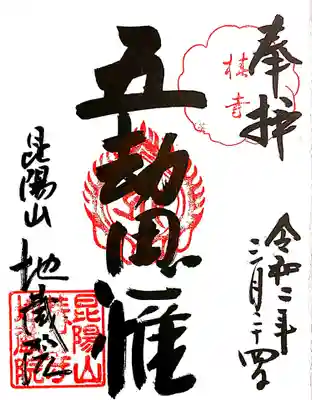 奉拝
椿寺
令和二年
三月二十四日
五劫思惟
昆陽山
地蔵院
昆陽山
椿寺
地蔵院